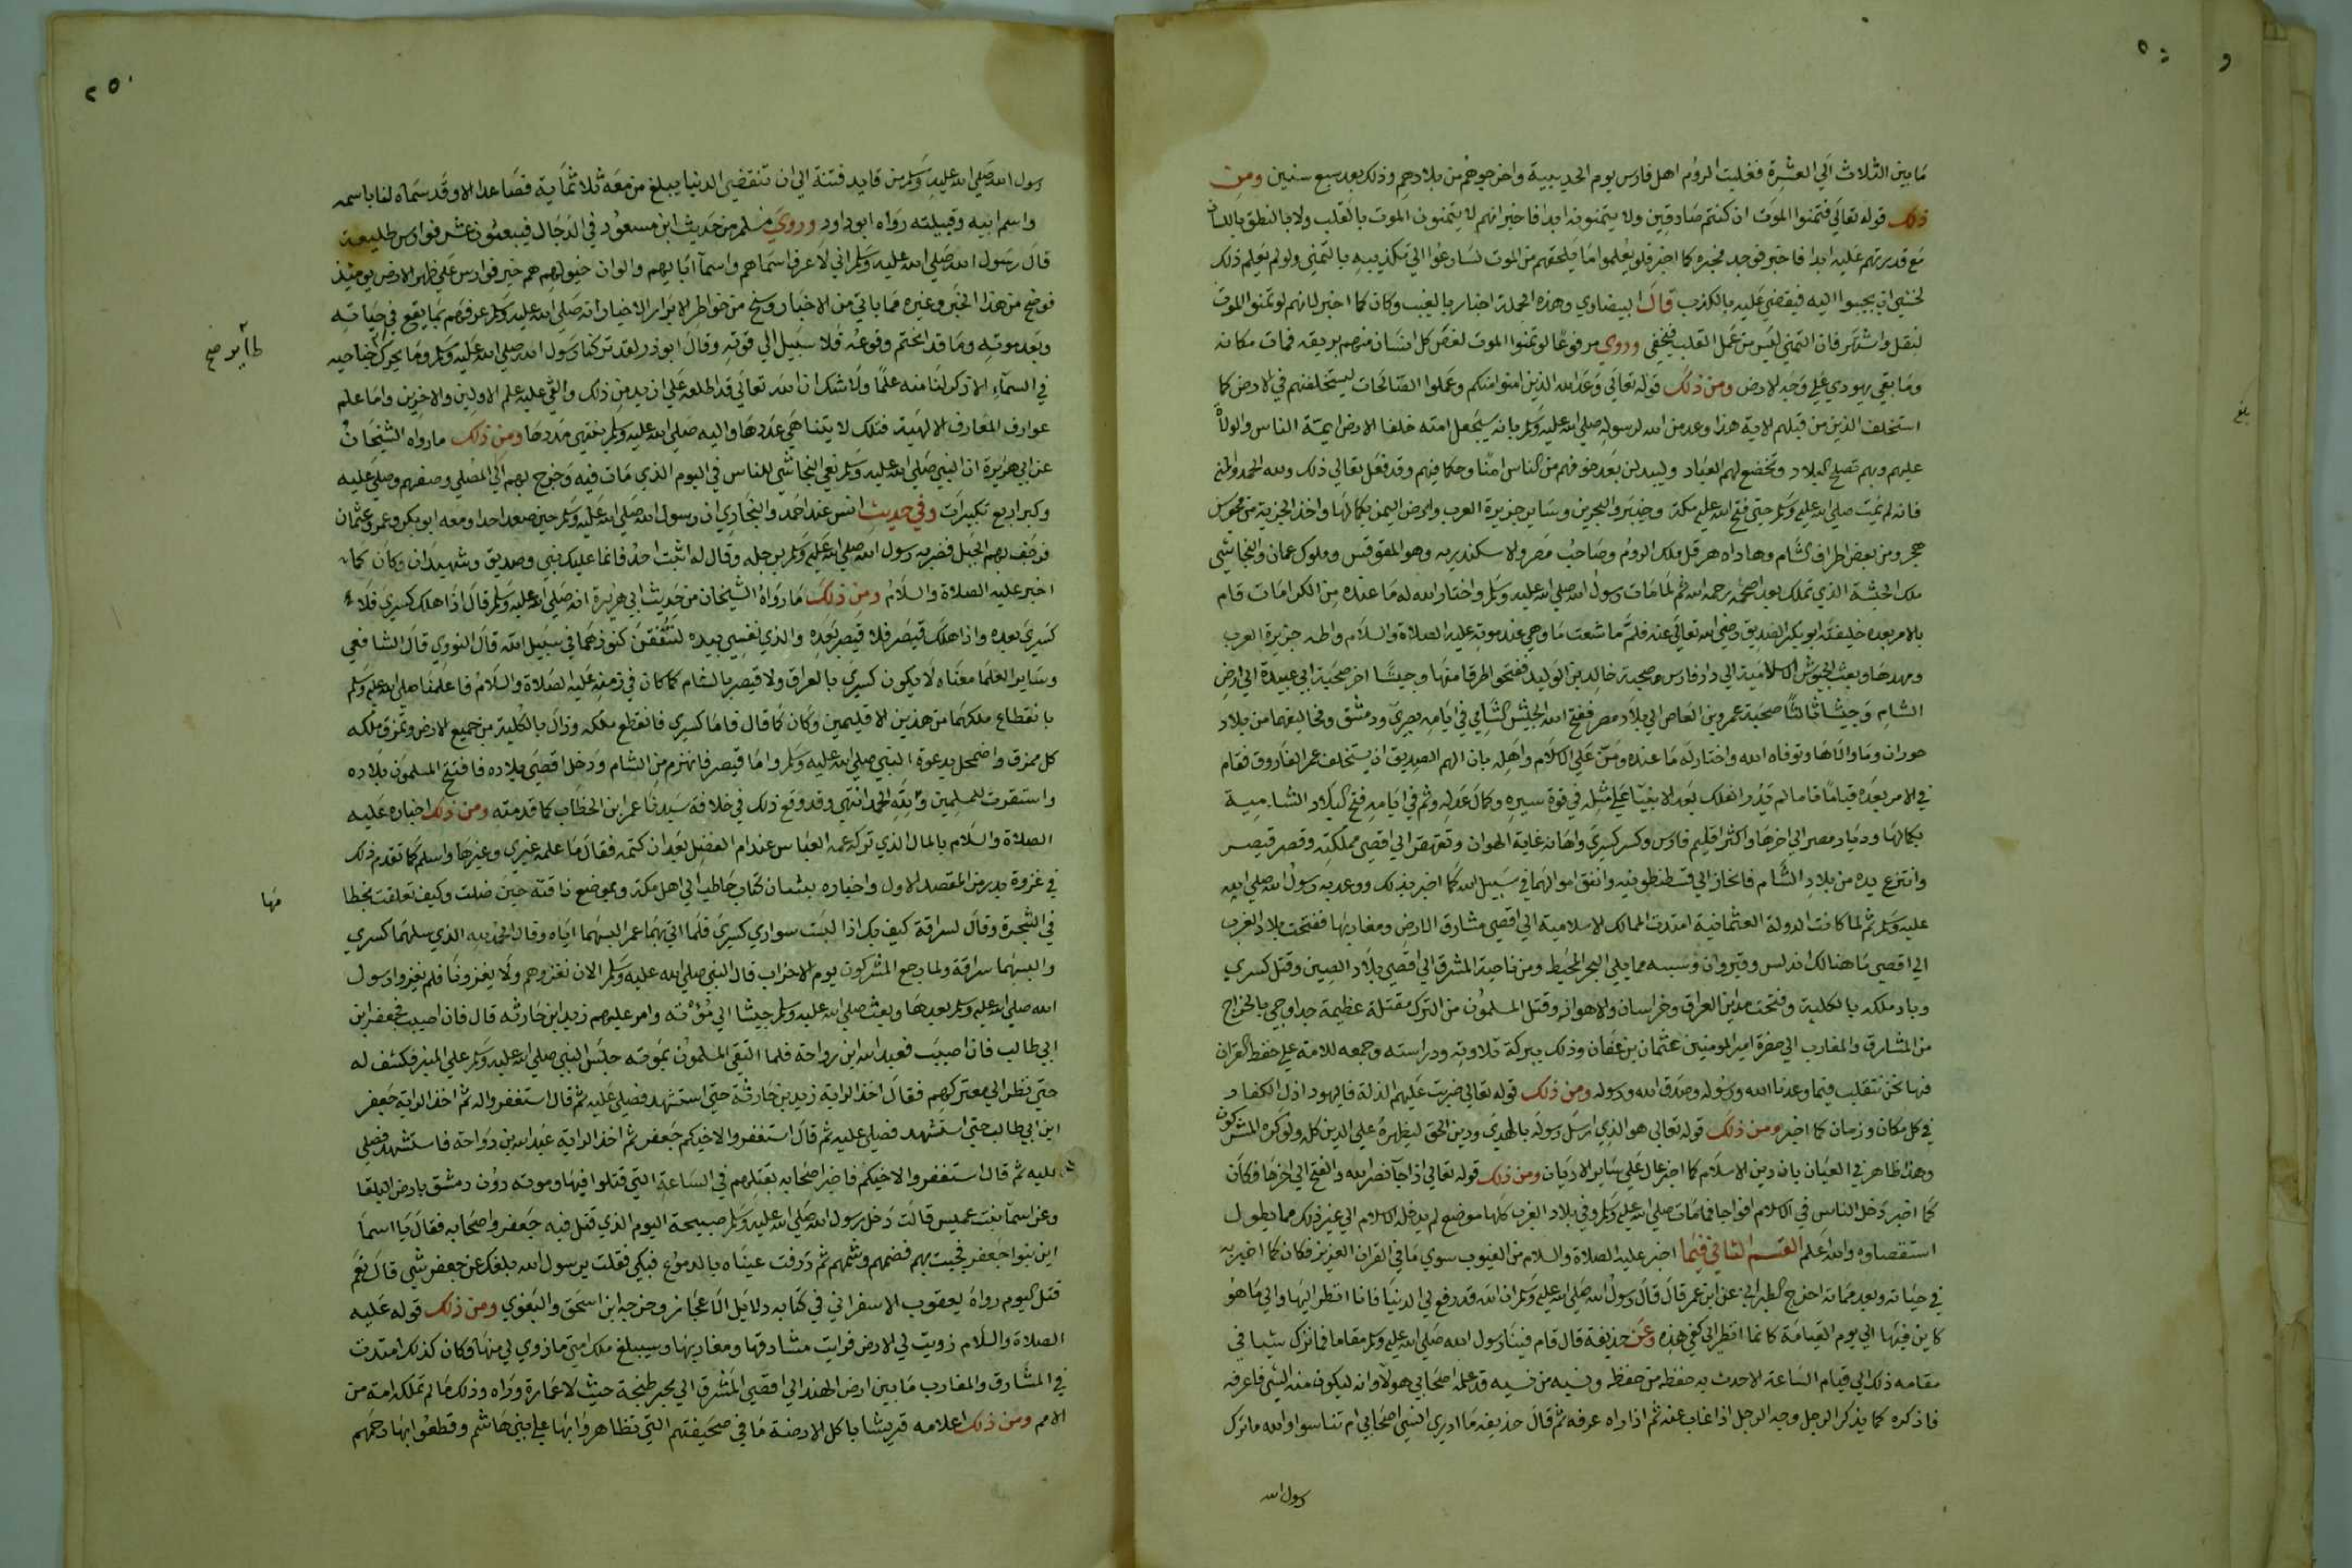 ما بين الثلاث الي العشرة فغلبت الروم اهل فارس يوم الحديبية واخرجوهم من بلادهم وذلك بعد سبع سنين ومن
ذلك قوله تعالي فتمنوا الموت ان كنتم صادقين ولا يتمنونه ابدا فاخبر انهم لا يتمنون الموت بالقلب ولا بالنطق باللسان
مع قدرتهم عليه ابدا فاخبر فوجد مخبره كما اخبر فلو يعلموا ما يلحقهم من الموت لسارعوا الي تكذيبه بالتمني ولو لم يعلم ذلك
لخشي ان يجيبوا اليه فيقضي عليه بالكذب قال البيضاوي وهذه الجملة اخبار بالغيب وكان كما اخبر لانهم لو تمنوا الموت
لنقل واشتهر فان التمني ليس من عمل القلب فيخفي وروي مرفوعا لو تمنوا الموت لغص كل انسان منهم بريقه فمات مكانه
وما بقي يهودي علي وجه الارض ومن ذلك قوله تعالي وعد الله الذين امنوا منكم وعملوا الصالحات ليستخلفنهم في الارض كما
استخلف الذين من قبلهم الاية هذا وعد من الله لرسوله صلي الله عليه وسلم بانه سيجعل امته خلفا الارض ايمة الناس والولاة
عليهم وبهم تصلح البلاد وتخضع لهم العباد وليبدلن بعد خوفهم من الناس امنا وحكما فيهم وقد فعل تعالي ذلك ولله الحمد والمنة
فانه لم يمت صلي الله عليه وسلم حتي فتح الله عليه مكة وخيبر والبحرين وساير جزيرة العرب وارض اليمن بكمالها واخذ الجزية من مجوس
هجر ومن بعض اطراف الشام وهاداه هرقل ملك الروم وصاحب مصر والاسكندريه وهو المقوقس وملوك عمان والنجاشي
ملك الحبشة الذي تملك بعد اصحمة رحمه الله ثم لما مات رسول الله صلي الله عليه وسلم واختار الله له ما عنده من الكرامات قام
بالامر بعده خليفته ابو بكر الصديق رضي الله تعالي عنه فلم ما شعث ما وهي عند موته عليه الصلاة والسلام واطد جزيرة العرب
ومهدها وبعث الجيوش الاسلامية الي دار فارس صحبة خالد بن الوليد ففتحوا طرقا منها وجيشا اخر صحبة ابي عبيدة الي ارض
الشام وجيشا ثالثا صحبة عمرو بن العاص الي بلاد مصر ففتح الله الجيش الشامي في ايامه بصري ودمشق ومخاليفهما من بلاد
حوران وما والاها وتوفاه الله واختار له ما عنده ومن علي الاسلام واهله بان الهم الصديق ان يستخلف عمر الفاروق فقام
في الامر بعده قياما تاما لم يدر الفلك بعد الانبيا علي مثله في قوة سيره وكمال عدله وتم في ايامه فتح البلاد الشامية
بكمالها وديار مصر الي اخرها واكثر اقليم فارس وكسر كسري واهانه غاية الهوان وتقهقر الي اقصي مملكته وقصر قيصر
وانتزع يده من بلاد الشام فانحاز الي قسطنطونيه وانفق اموالهما في سبيل الله كما اخبر بذلك ووعد به رسول الله صلي الله
عليه وسلم ثم لما كانت الدولة العثمانية امتدت الممالك الاسلامية الي اقصي مشارق الارض ومغاربها ففتحت بلاد الغرب
الي اقصي ما هنالك اندلس وقيروان وسبته مما يلي البحر المحيط ومن ناحية المشرق الي اقصي بلاد الصين وقتل كسري
وباد ملكه بالكلية وفتحت مداين العراق وخراسان والاهواز وقتل المسلمون من الترك مقتلة عظيمة جدا وجي بالخراج
من المشارق والمغارب الي حضرة امير المومنين عثمان بن عفان وذلك ببركة تلاوته ودراسته وجمعه للامة علي حفظ القران
فها نحن نتقلب فيما وعدنا الله ورسوله وصدق الله ورسوله ومن ذلك قوله تعالي ضربت عليهم الذلة فاليهود اذل الكفار
في كل مكان وزمان كما اخبر ومن ذلك قوله تعالي هو الذي ارسل رسوله بالهدي ودين الحق ليظهره علي الدين كله ولو كره المشركون
وهذا ظاهر في العيان بان دين الاسلام كما اخبر عال علي ساير الاديان ومن ذلك قوله تعالي اذا جآ نصر الله والفتح الي اخرها فكان
كما اخبر دخل الناس في الاسلام افواجا فما مات صلي الله عليه وسلم وفي بلاد العرب كلها موضع لم يدخله الاسلام الي غير ذلك مما يطول
استقصاوه والله اعلم القسم الثاني فيما اخبر عليه الصلاة والسلام من الغيوب سوي ما في القران العزيز فكان كما اخبر به
في حياته وبعد مماته اخرج الطبراني عن ابن عمر قال قال رسول الله صلي الله عليه وسلم ان الله قد رفع لي الدنيا فانا انظر اليها والي ما هو
كاين فيها الي يوم القيامة كانما انظر الي كفي هذه وعن حذيفة قال قام فينا رسول الله صلي الله عليه وسلم مقاما فما ترك شيا في
مقامه ذلك الي قيام الساعة الا حدث به حفظه من حفظه ونسيه من نسيه قد علمه اصحابي هولآ وانه ليكون منه الشي فاعرفه
فاذكره كما يذكر الرجل وجه الرجل اذا غاب عنه ثم اذا راه عرفه ثم قال حذيفه ما ادري انسي اصحابي ام تناسوا والله ما ترك
رسول الله
٢٥٠
رسول الله صلي الله عليه وسلم من قايد فتنة الي ان تنقضي الدنيا يبلغ من معه ثلاثماية فصاعدا الا وقد سماه لنا باسمه
واسم ابيه وقبيلته رواه ابو داود وروي مسلم من حديث ابن مسعود في الدجال فيبعثون عشر فوارس طليعة
قال رسول الله صلي الله عليه وسلم اني لا عرف اسماهم واسمآ ابايهم والوان خيولهم هم خير فوارس علي ظهر الارض يوميذ
فوضح من هذا الخبر وغيره مما ياتي من الاخبار وسنح من خواطر الابرار الاخيار انه صلي الله عليه وسلم عرفهم بما يقع في حياته
وبعد موته وما قد انحتم وقوعه فلا سبيل الي فوته وقال ابو ذر لقد تركنا رسول الله صلي الله عليه وسلم وما يحرك جناحيه
طآير صح
في السمآء الا ذكر لنا منه علما ولا شك ان الله تعالي قد اطلعه علي ازيد من ذلك والقي عليه علم الاولين والاخرين واما علم
عوارف المعارف الالهية فتلك لا يتناهي عددها واليه صلي الله عليه وسلم ينتهي مددها ومن ذلك ما رواه الشيخان
عن ابي هريرة ان النبي صلي الله عليه وسلم نعي النجاشي للناس في اليوم الذي مات فيه وخرج بهم الي المصلي وصفهم وصلي عليه
وكبر اربع تكبيرات وفي حديث انس عند احمد والبخاري ان رسول الله صلي الله عليه وسلم حين صعد احدا ومعه ابو بكر وعمر وعثمان
فرجف بهم الجبل فضربه رسول الله صلي الله عليه وسلم برجله وقال له اثبت احد فانما عليك نبي وصديق وشهيدان وكان كما
اخبر عليه الصلاة والسلام ومن ذلك ما رواه الشيخان من حديث ابي هريرة انه صلي الله عليه وسلم قال اذا هلك كسري فلا
كسري بعده واذا هلك قيصر فلا قيصر بعده والذي نفسي بيده لتنفقن كنوزهما في سبيل الله قال النووي قال الشافعي
وساير العلما معناه لا يكون كسري بالعراق ولا قيصر بالشام كما كان في زمنه عليه الصلاة والسلام فاعلمنا صلي الله عليه وسلم
بانقطاع ملكهما من هذين الاقليمين وكان كما قال فاما كسري فانقطع ملكه وزال بالكلية من جميع الارض وتمزق ملكه
كل ممزق واضمحل بدعوة النبي صلي الله عليه وسلم واما قيصر فانهزم من الشام ودخل اقصي بلاده فافتتح المسلمون بلاده
واستقرت للمسلمين ولله الحمد انتهي وقد وقع ذلك في خلافة سيدنا عمر ابن الخطاب كما قدمته ومن ذلك اخباره عليه
الصلاة والسلام بالمال الذي تركه عمه العباس عند ام الفضل بعد ان كتمه فقال ما علمه غيري وغيرها واسلم كما تقدم ذلك
في غزوة بدر من المقصد الاول واخباره بشان كتاب حاطب الي اهل مكة وبموضع ناقته حين ضلت وكيف تعلقت بخطا
مها
في الشجرة وقال لسراقة كيف بك اذا البست سواري كسري فلما اتي بهما عمر البسهما اياه وقال الحمد لله الذي سلبهما كسري
والبسهما سراقة ولما رجع المشركون يوم الاحزاب قال النبي صلي الله عليه وسلم الان نغزوهم ولا يغزونا فلم يغزوا رسول
الله صلي الله عليه وسلم بعدها وبعث صلي الله عليه وسلم جيشا الي مؤته وامر عليهم زيد ابن حارثه قال فان اصيب فجعفر ابن
ابي طالب فان اصيب فعبد الله ابن رواحة فلما التقي المسلمون بموته جلس النبي صلي الله عليه وسلم علي المنبر فكشف له
حتي نظر الي معتركهم فقال اخذ الراية زيد بن حارثة حتي استشهد فصلي عليه ثم قال استغفروا له ثم اخذ الراية جعفر
ابن ابي طالب حتي استشهد فصلي عليه ثم قال استغفروا لاخيكم جعفر ثم اخذ الراية عبد الله بن رواحة فاستشهد فصلي
عليه ثم قال استغفروا لاخيكم فاخبر اصحابه بقتلهم في الساعة التي قتلوا فيها وموته دون دمشق بارض البلقا
وعن اسمآ بنت عميس قالت دخل رسول الله صلي الله عليه وسلم صبيحة اليوم الذي قتل فيه جعفر واصحابه فقال يا اسما
اين بنوا جعفر فجيت بهم فضمهم وشمهم ثم ذرفت عيناه بالدموع فبكي فقلت يرسول الله بلغك عن جعفر شي قال نعم
قتل اليوم رواه يعقوب الاسفرايني في كتابه دلايل الاعجاز وخرجه ابن اسحق والبغوي ومن ذلك قوله عليه
الصلاة والسلام زويت لي الارض فرايت مشارقها ومغاربها وسيبلغ ملك امتي ما زوي لي منها وكان كذلك امتدت
في المشارق والمغارب ما بين ارض الهند الي اقصي المشرق الي بحر طنجة حيث لا عمارة وراه وذلك ما لم تملكه امة من
الامم ومن ذلك اعلامه قريشا باكل الارضة ما في صحيفتهم التي تظاهروا بها علي بني هاشم وقطعوا بها رحمهم